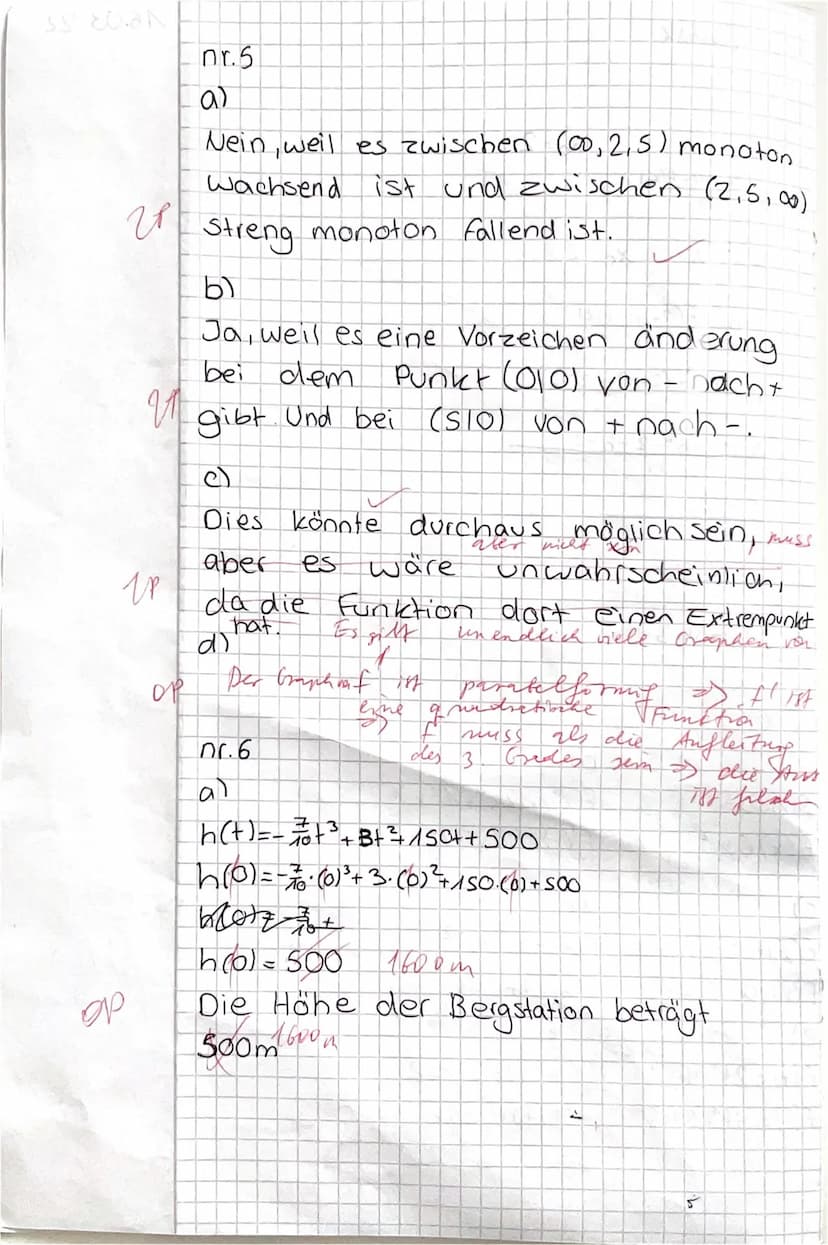 nr.5
a)
Nein, weil es zwischen (∞, 2,5) monoton
wachsend ist und zwischen (2,5, ∞)
2P streng monoton fallend ist. ✓
b)
Ja, weil es eine Vorzeichen änderung
bei dem Punkt (0|0) von - nach +
2P gibt. Und bei (5|0) von + nach -.
c)
Dies könnte durchaus möglich sein, muss
aber nicht sein
aber es wäre unwahrscheinlich,
1P da die Funktion dort einen Extrempunkt
hat. Es gibt unendlich viele Graphen von
d)
0P Der Graph f' ist parabelförmig ⇒ f' ist
eine quadratische Funktion
⇒ f muss als die Aufleitung
nr.6 des 3. Grades sein ⇒ die
a) ist
h(t)=-7/10t³+3t²+150t+500
h(0)=-7/10·(0)³+3·(0)²+150·(0)+500
h(0)=-7/10+
h(0)=500 1600m
0P Die Höhe der Bergstation beträgt
500m 1600m
5